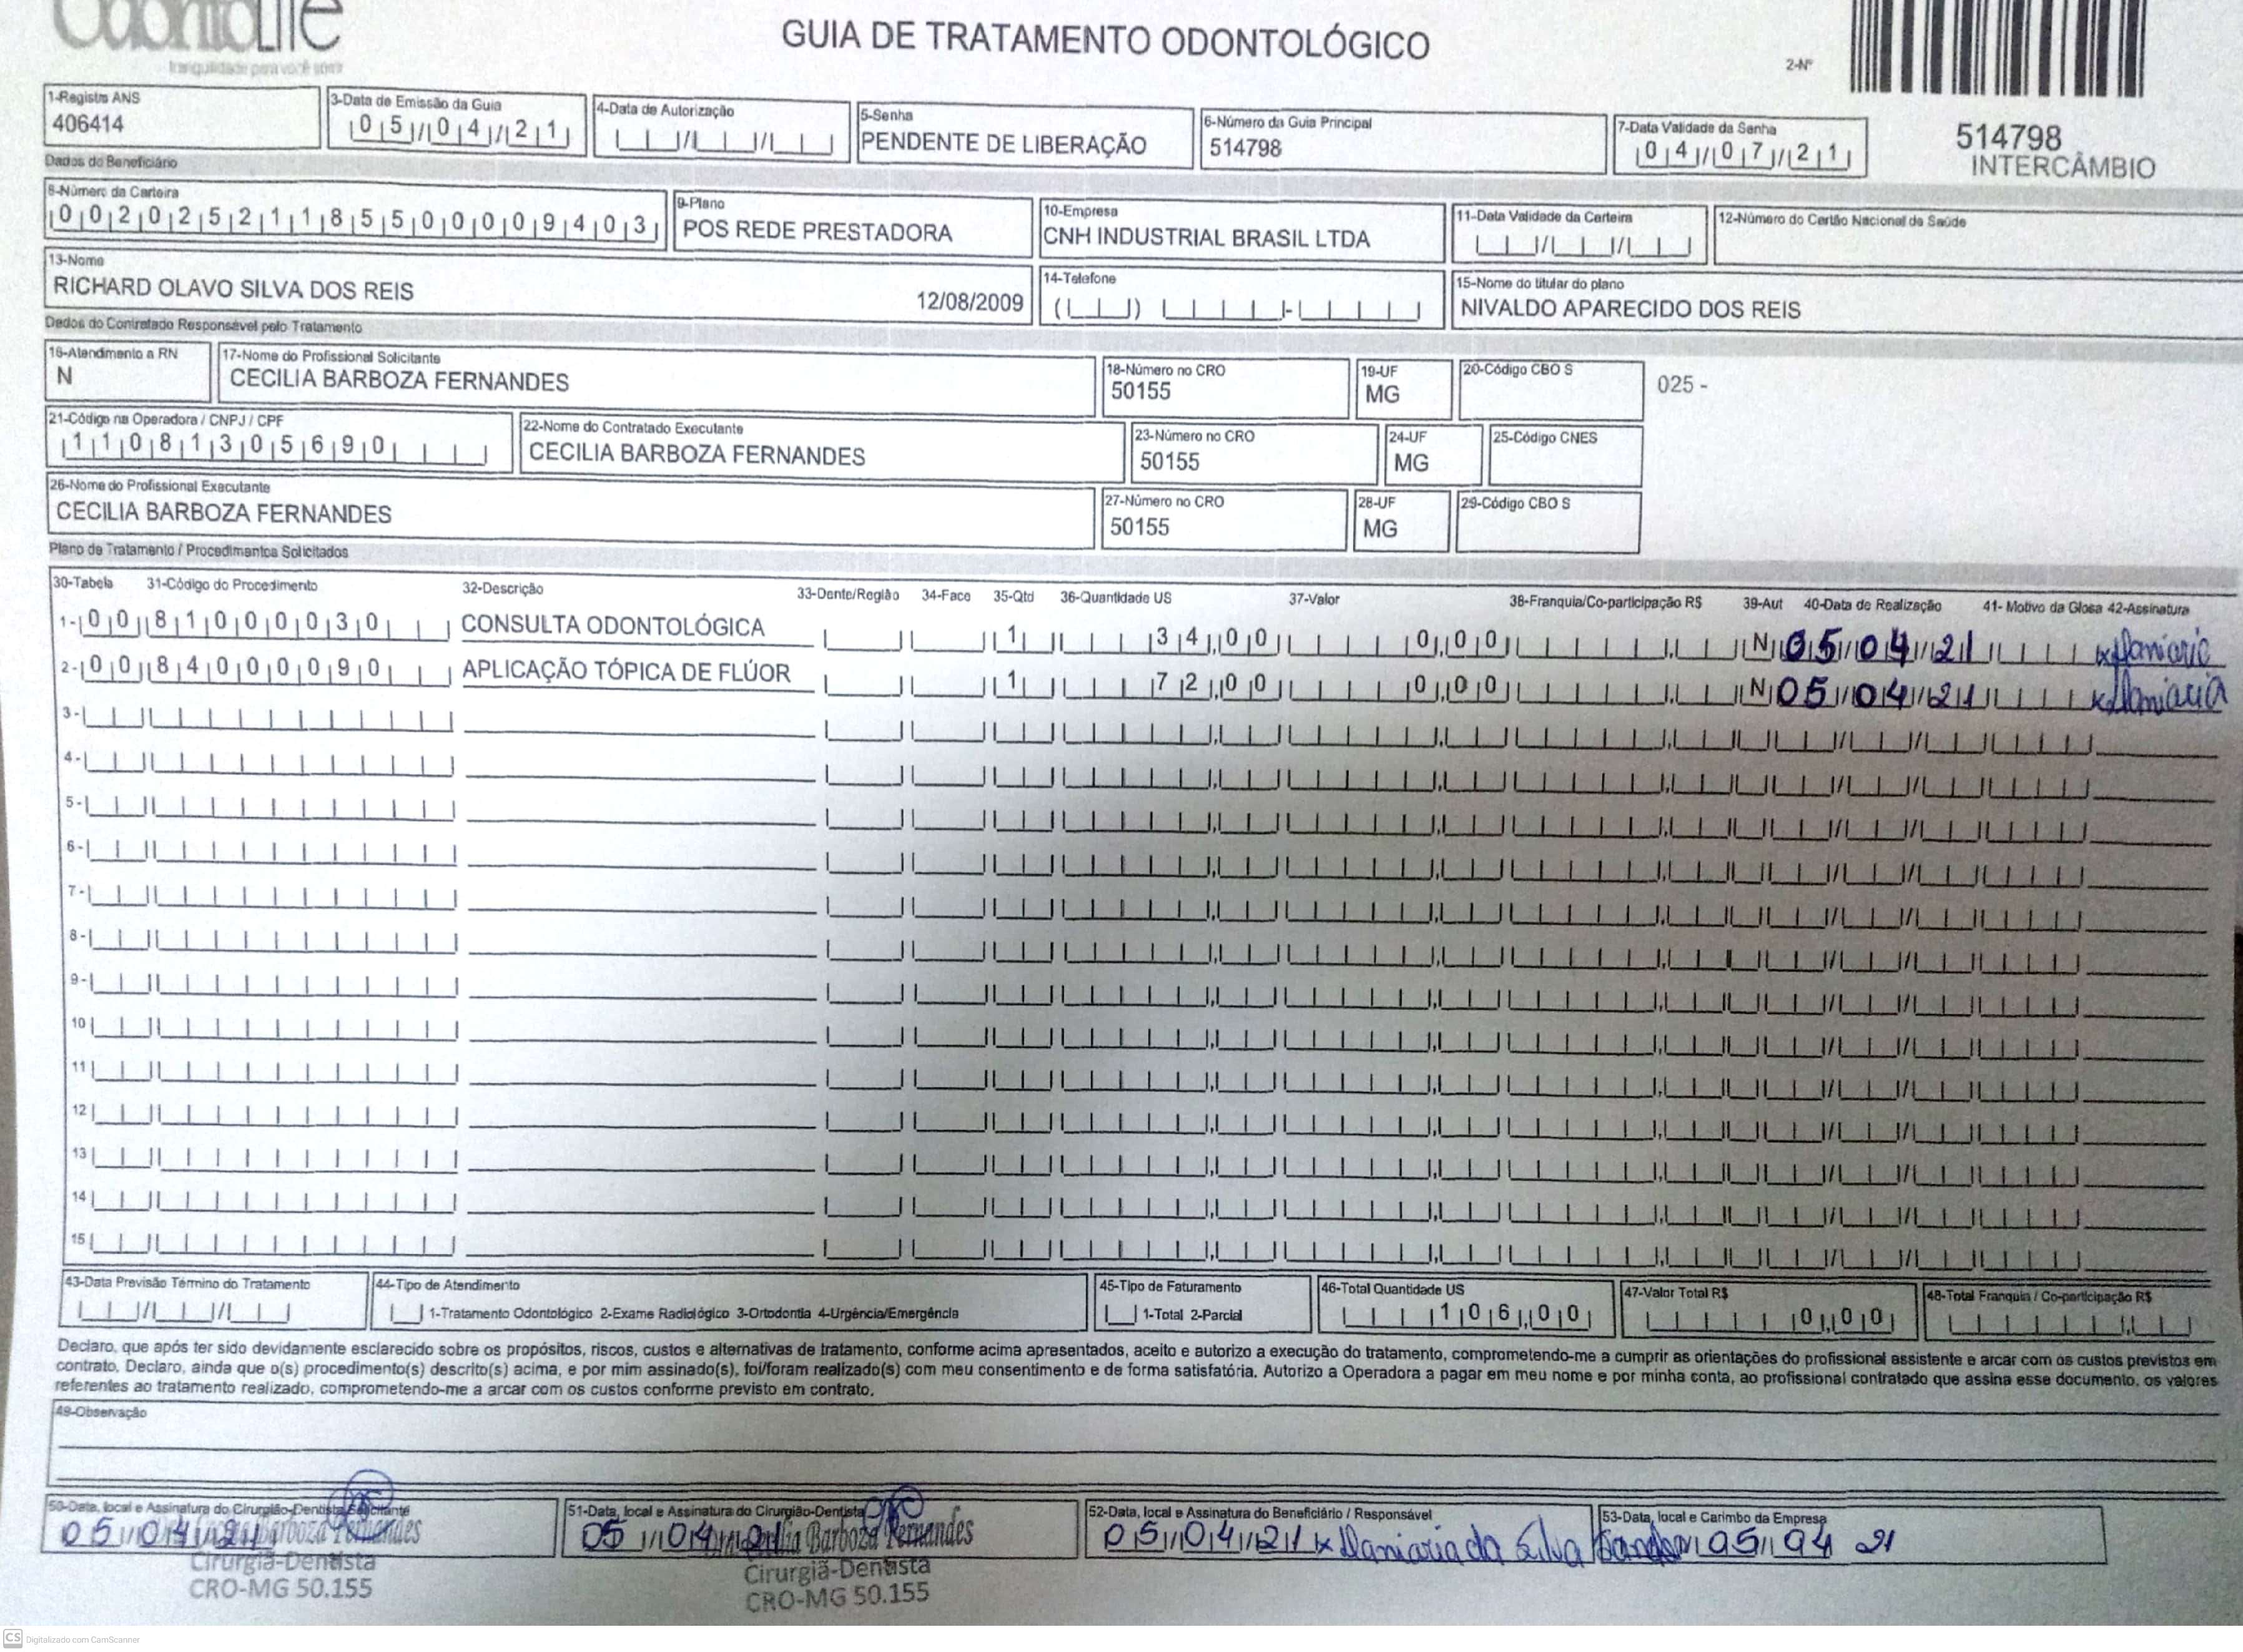 OdontoLife
tranquilidade para você sorrir
GUIA DE TRATAMENTO ODONTOLÓGICO
2-Nº
514798
INTERCÂMBIO
1-Registro ANS
406414
3-Data de Emissão da Guia
05/04/21
4-Data de Autorização
5-Senha
PENDENTE DE LIBERAÇÃO
6-Número da Guia Principal
514798
7-Data Validade da Senha
04/07/21
Dados do Beneficiário
8-Número da Carteira
00202521185500009403
9-Plano
POS REDE PRESTADORA
10-Empresa
CNH INDUSTRIAL BRASIL LTDA
11-Data Validade da Carteira
12-Número do Cartão Nacional de Saúde
13-Nome
RICHARD OLAVO SILVA DOS REIS 12/08/2009
14-Telefone
15-Nome do titular do plano
NIVALDO APARECIDO DOS REIS
Dados do Contratado Responsável pelo Tratamento
16-Atendimento a RN
N
17-Nome do Profissional Solicitante
CECILIA BARBOZA FERNANDES
18-Número no CRO
50155
19-UF
MG
20-Código CBO S
025 -
21-Código na Operadora / CNPJ / CPF
11081305690
22-Nome do Contratado Executante
CECILIA BARBOZA FERNANDES
23-Número no CRO
50155
24-UF
MG
25-Código CNES
26-Nome do Profissional Executante
CECILIA BARBOZA FERNANDES
27-Número no CRO
50155
28-UF
MG
29-Código CBO S
Plano de Tratamento / Procedimentos Solicitados
30-Tabela 31-Código do Procedimento 32-Descrição 33-Dente/Região 34-Face 35-Qtd 36-Quantidade US 37-Valor 38-Franquia/Co-participação R$ 39-Aut 40-Data de Realização 41- Motivo da Glosa 42-Assinatura
1- 00 81000030 CONSULTA ODONTOLÓGICA 1 34,00 0,00 N 05/04/21 x Damiaria
2- 00 84000090 APLICAÇÃO TÓPICA DE FLÚOR 1 72,00 0,00 N 05/04/21 x Damiaria
3-
4-
5-
6-
7-
8-
9-
10
11
12
13
14
15
43-Data Previsão Término do Tratamento
44-Tipo de Atendimento
1-Tratamento Odontológico 2-Exame Radiológico 3-Ortodontia 4-Urgência/Emergência
45-Tipo de Faturamento
1-Total 2-Parcial
46-Total Quantidade US
106,00
47-Valor Total R$
0,00
48-Total Franquia / Co-participação R$
Declaro, que após ter sido devidamente esclarecido sobre os propósitos, riscos, custos e alternativas de tratamento, conforme acima apresentados, aceito e autorizo a execução do tratamento, comprometendo-me a cumprir as orientações do profissional assistente e arcar com os custos previstos em
contrato. Declaro, ainda que o(s) procedimento(s) descrito(s) acima, e por mim assinado(s), foi/foram realizado(s) com meu consentimento e de forma satisfatória. Autorizo a Operadora a pagar em meu nome e por minha conta, ao profissional contratado que assina esse documento, os valores
referentes ao tratamento realizado, comprometendo-me a arcar com os custos conforme previsto em contrato.
49-Observação
50-Data, local e Assinatura do Cirurgião-Dentista Solicitante
05/04/21 Barboza Fernandes
Cirurgiã-Dentista
CRO-MG 50.155
51-Data, local e Assinatura do Cirurgião-Dentista
05/04/21 Barboza Fernandes
Cirurgiã-Dentista
CRO-MG 50.155
52-Data, local e Assinatura do Beneficiário / Responsável
05/04/21 x Damiaria da Silva
53-Data, local e Carimbo da Empresa
05 04 21
CS Digitalizado com CamScanner